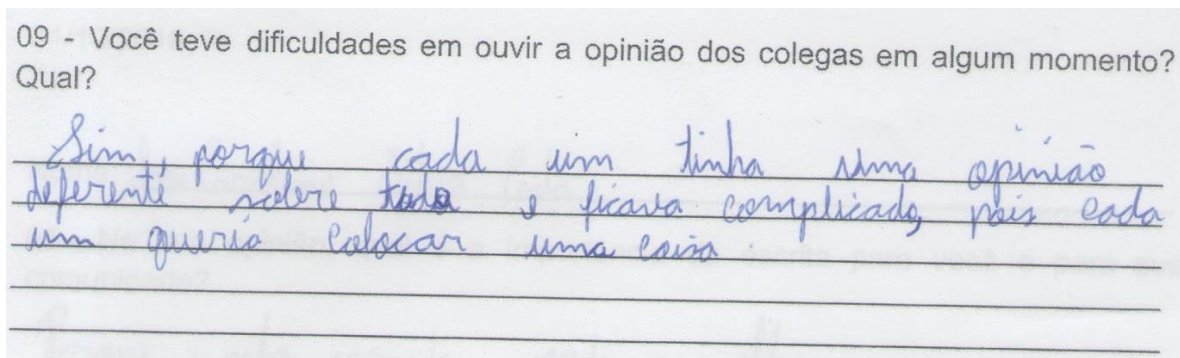 09 - Você teve dificuldades em ouvir a opinião dos colegas em algum momento?
Qual?
Sim, porque cada um tinha uma opinião
deferente sobre tudo e ficava complicado, pois cada
um queria colocar uma coisa.